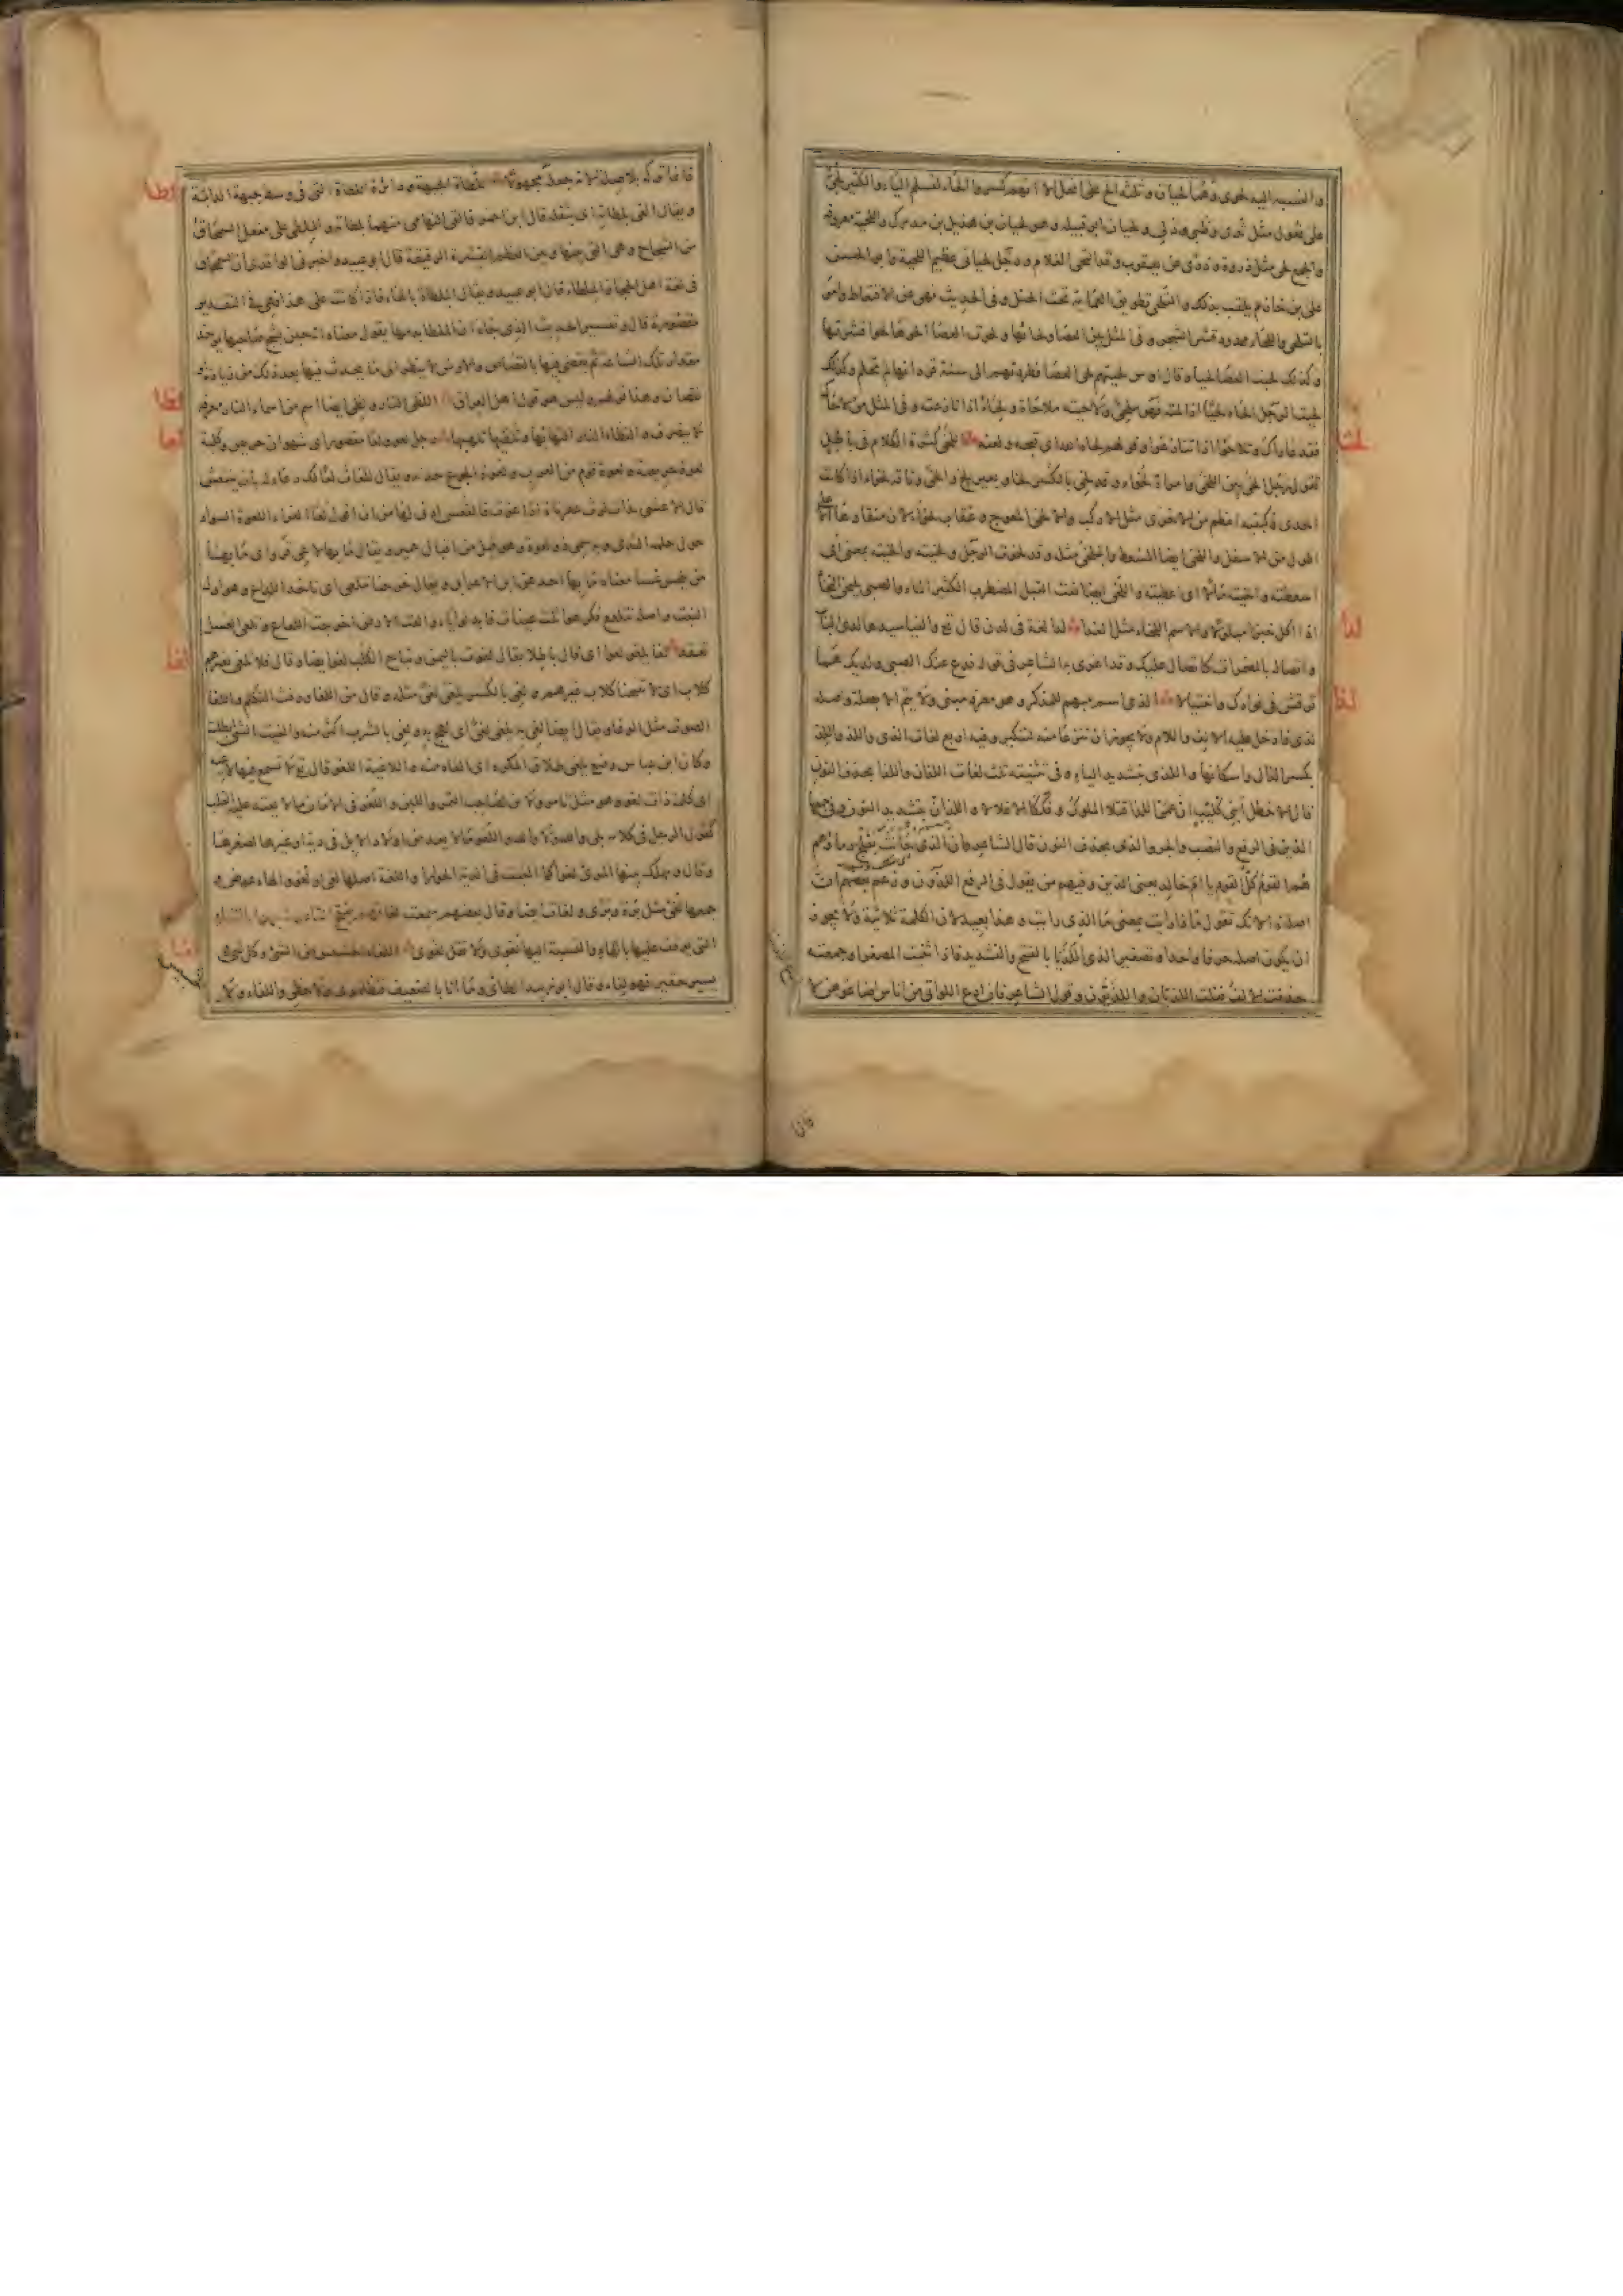 والنسبة اليه لحوى وهما لحيان وثلثة الح على افعل الا انهم كسروا الحاء لتسلم الياء والكثير لحى
على فعول مثل ثدى وظبى ودلى ولحيان ابو قبيلة وهو لحيان بن هذيل بن مدركة واللحية معروفة
والجمع لحى مثل ذروة وذرى عن يعقوب وقد التحى الغلام ورجل لحيانى عظيم اللحية وابو الحسن
على بن خازم يلقب بذلك والتلحى تطويق العمامة تحت الحنك وفى الحديث نهى عن الاقتعاط وامر
بالتلحى واللحاء ممدود قشر الشجر وفى المثل بين العصا ولحائها ولحوت العصا الحوها لحوا قشرتها
وكذلك لحيت العصا لحيا وقال اوس لحيتهم لحى العصا فطردتهم الى سنة قردانها لم تحلم وكذلك
لحيت الرجل الحاه لحيا اذا لمته فهو ملحى ولاحيته ملاحاة ولحاء اذا نازعته وفى المثل من لاحاك
فقد عاداك وتلاحوا اذا تنازعوا وقولهم لحاه الله اى قبحه ولعنه اللخى كثرة الكلام فى باطل
تقول رجل الخى بين اللخى وامراة لخواء وقد لخى بالكسر لخا وبعير لخ والخى وناقة لخواء اذا كانت
احدى ركبتيه اعظم من الاخرى مثل الاركب والالخى المعوج وعقاب لخواء لان منقارها الاعلى
اطول من الاسفل واللخى ايضا المسعط والملخى مثله وقد لخوت الرجل ولخيته والخيته بمعنى اى
اسعطته والخيته مالا اى اعطيته واللخى ايضا نعت القبل المضطرب الكثير الماء والصبى يلتخى التخاء
اذا اكل خبزا مبلولا والاسم اللخاء مثل الغذاء لدى لغة فى لدن قال تع والفيا سيدها لدى الباب
واتصاله بالمضمرات كاتصال عليك وقد اغرى به الشاعر فى قوله فدع عنك الصبى ولديك هما
توقش فى فوادك واختبالا الذى اسم مبهم للمذكر وهو معرفة مبنى ولا يتم الا بصلة واصله
لذى فادخل عليه الالف واللام ولا يجوز ان تنزعا منه لتنكير وفيه اربع لغات الذى واللذ
بكسر الذال واسكانها والذى بتشديد الياء وفى تثنيته ثلث لغات اللذان واللذا بحذف النون
قال الاخطل ابنى كليب ان عمى اللذا قتلا الملوك وفككا الاغلالا واللذان بتشديد النون وفى جمعها
الذين فى الرفع والنصب والجر والذى بحذف النون قال الشاعر فان الذى حانت بفلج دماؤهم
هم القوم كل القوم يا ام خالد يعنى الذين ومنهم من يقول فى الرفع اللذون وزعم بعضهم ان
اصله ذا لانك تقول ماذا رايت بمعنى ما الذى رايت وهذا بعيد لان الكلمة ثلاثية ولا يجوز
ان يكون اصله حرفا واحدا وتصغير الذى اللذيا بالفتح والتشديد فاذا ثنيت المصغر او جمعته
حذفت الالف فقلت اللذيان واللذيون وقول الشاعر فان ادع اللواتى من اناس اضاعوهن لا
لخا
لدا
لذا
فانما تركه بلا صلة لانه جعله مجهولا لطاة الجبهة ودائرة اللطاة التى فى وسط جبهة الدابة
ويقال القى بلطاته اى بثقله قال ابن احمر فالقى التهامى منهما بلطاته والملطى على مفعل السمحاق
من الشجاج وهى التى بينها وبين العظم القشرة الرقيقة قال ابو عبيد واخبرنى الواقدى ان السمحاق
فى لغة اهل الحجاز الملطاء قال ابو عبيد ويقال الملطاة بالهاء فاذا كانت على هذا فهى فى التقدير
مقصورة قال وتفسير الحديث الذى جاء ان الملطاة بدمها يقول معناه انه حين يشج صاحبها يوخذ
مقدارها تلك الساعة ثم يقضى فيها بالقصاص والارش لا ينظر الى ما يحدث فيها بعد ذلك من زيادة
نقصان وهذا قولهم وليس هو قول اهل العراق اللظى النار ولظى ايضا اسم من اسماء النار معرفة
لا ينصرف والتظاء النار التهابها وتلظيها تلهبها رجل لعو ولعا مقصور اى شهوان حريص وكلبة
لعوة حريصة ولعوة قوم من العرب ولعوة الجوع حدته ويقال للعاثر لعا لك دعاء له بان ينتعش
قال الاعشى بذات لوث عفرناة اذا عثرت فالتعس ادنى لها من ان اقول لعا واللعوة السواد
حول حلمة الثدى وبه سمى ذو لعوة وهو قيل من اقيال حمير ويقال ما بها لاعى قرو اى ما بها
من يلحس عسا معناه ما بها احد عن ابن الاعرابى ويقال خرجنا نتلعى اى ناخذ اللعاع وهو اول
النبت واصله نتلعع فكرهوا ثلث عينات فابدلوا ياء والعت الارض اخرجت اللعاع وتلعى العسل
تعقد لغا يلغو لغوا اى قال باطلا يقال لغوت باليمين ونباح الكلب لغو ايضا وقال فلا تلغى لغيرهم
كلاب اى لا تقتنا كلاب غيرهم ولغى بالكسر يلغى لغى مثله وقال عن اللغا ورفث التكلم واللغا
الصوت مثل الوغا ويقال ايضا لغى به يلغى لغى اى لهج به ولغى بالشراب اكثر منه والغيت الشى ابطلته
وكان ابن عباس رضيع يلغى طلاق المكره اى الغاه منه واللاغية اللغو قال تع لا تسمع فيها لاغية
اى كلمة ذات لغو وهو مثل تامر ولابن لصاحب التمر واللبن واللغو فى الايمان ما لا يعقد عليه القلب
كقول الرجل فى كلامه بلى والله ولا والله واللغو ما لا يعد من اولاد الابل فى دية او غيرها لصغرها
وقال ويهلك بينها المرئى لغوا كما الغيت فى الدية الحوارا واللغة اصلها لغى او لغو والهاء عوض
جمعها لغى مثل برة وبرى ولغات ايضا وقال بعضهم سمعت لغاتهم بفتح التاء وشبهها بالتاء
التى يوقف عليها بالهاء والنسبة اليها لغوى ولا تقل لغوى اللفاء الخسيس من الشئ وكل شئ
يسير حقير فهو لفاء وقال ابو زبيد الطائى وما انا بالضعيف فتظلمونى ولا حظى اللفاء ولا
لطا
لظا
لعا
لغا
لفا
الخسيس